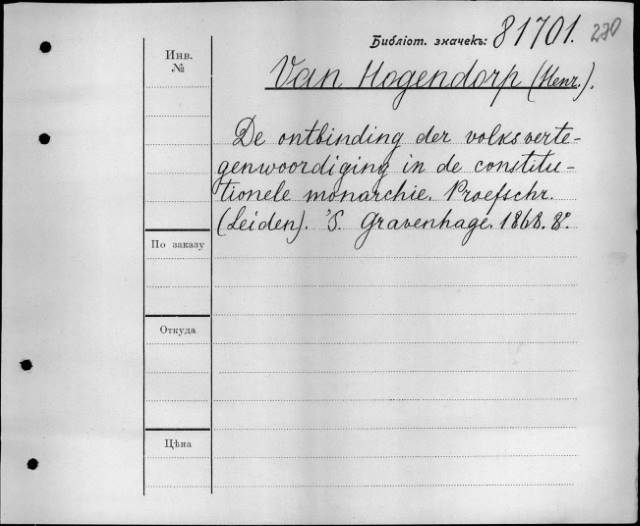 Библіот. значекъ: 81701. 230
Инв.
№
Van Hogendorp (Henr.).
De ontbinding der volksverte-
genwoordiging in de constitu-
tionele monarchie. Proefschr.
(Leiden). 'S. Gravenhage. 1868. 8º.
По заказу
Откуда
Цѣна